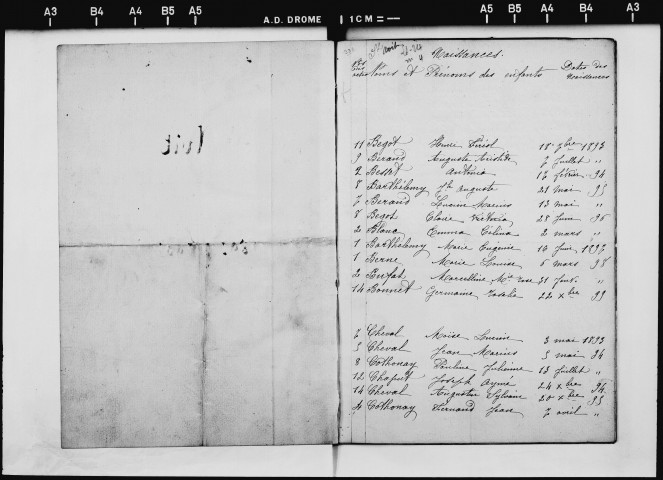 A3 B4 A4 B5 A5 A.D. DROME 1 CM = A5 B5 A4 B4 A3
Naissances.
Noms et Prénoms des enfants Dates des
Naissances
11 Begot 18 9bre 1893
9 Beraud Auguste Aristide 7 Juillet "
2 Besset Antonia 17 février 94
8 Barthélemy Jh Auguste 21 mai 95
7 Beraud Lucien Marius 13 mai "
8 Begot Claire Victoria 28 Juin 96
2 Blanc Emma Célina 2 mars "
1 Barthélemy Marie Eugénie 10 Juin 1897
1 Berne Marie Louise 5 mars 98
2 Marcelline Mie Rose 21 "
14 Bonnet Germaine Rosalie 22 xbre 99
7 Cheval Moïse Lucien 3 mai 1893
5 Cheval Jean Marius 5 mai 94
8 Cothonay Pauline Julienne 13 Juillet "
12 Chaput Joseph Aymé 24 xbre 94
14 Cheval Augustin Sylvain 20 xbre 95
4 Cothonay Fernand Jean 7 avril "